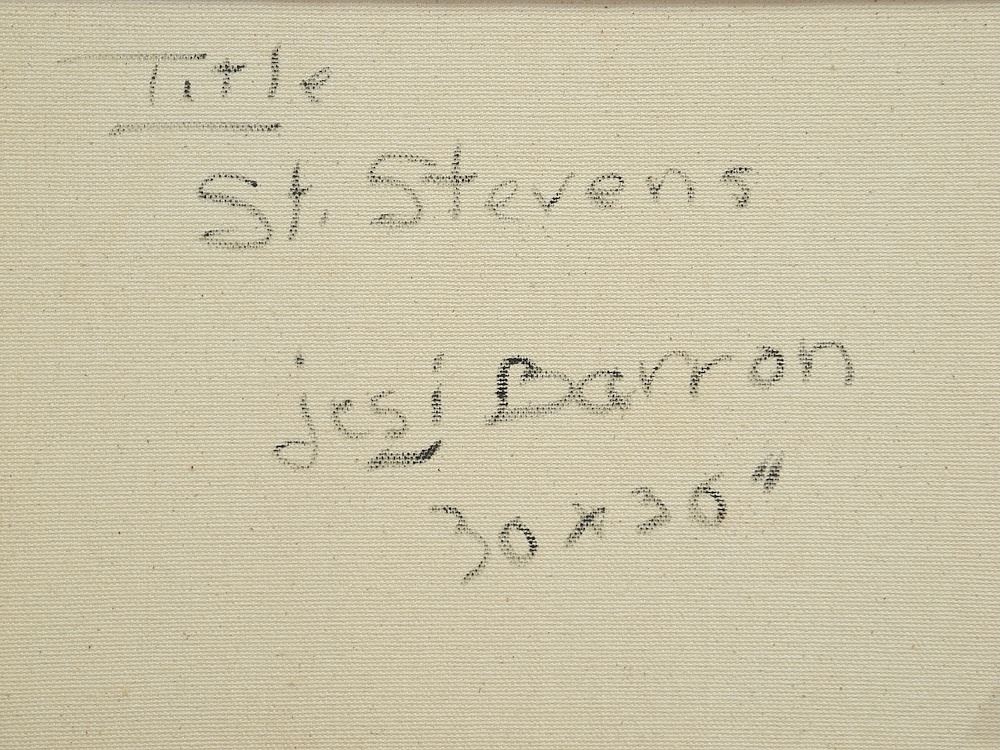 Title
St. Stevens
jesi Barron
30 x 30"